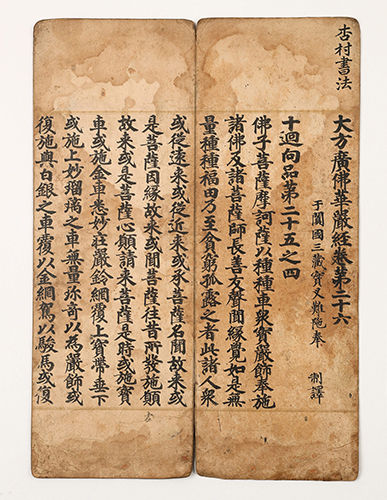 杏村書法
大方廣佛華嚴經卷第二十六
于闐國三藏實叉難陁奉 制譯
十迴向品第二十五之四
佛子菩薩摩訶薩以種種車衆寶嚴飾奉施
諸佛及諸菩薩師長善友聲聞緣覺如是無
量種種福田乃至貧窮孤露之者此諸人衆
或從遠来或從近来或承菩薩名聞故来或
是菩薩因緣故来或聞菩薩往昔所發施願
故来或是菩薩心願請来菩薩是時或施寶
車或施金車悉妙莊嚴鈴網覆上寶帶垂下
或施上妙瑠璃之車無量珎奇以為嚴飾或
復施與白銀之車覆以金網駕以駿馬或復